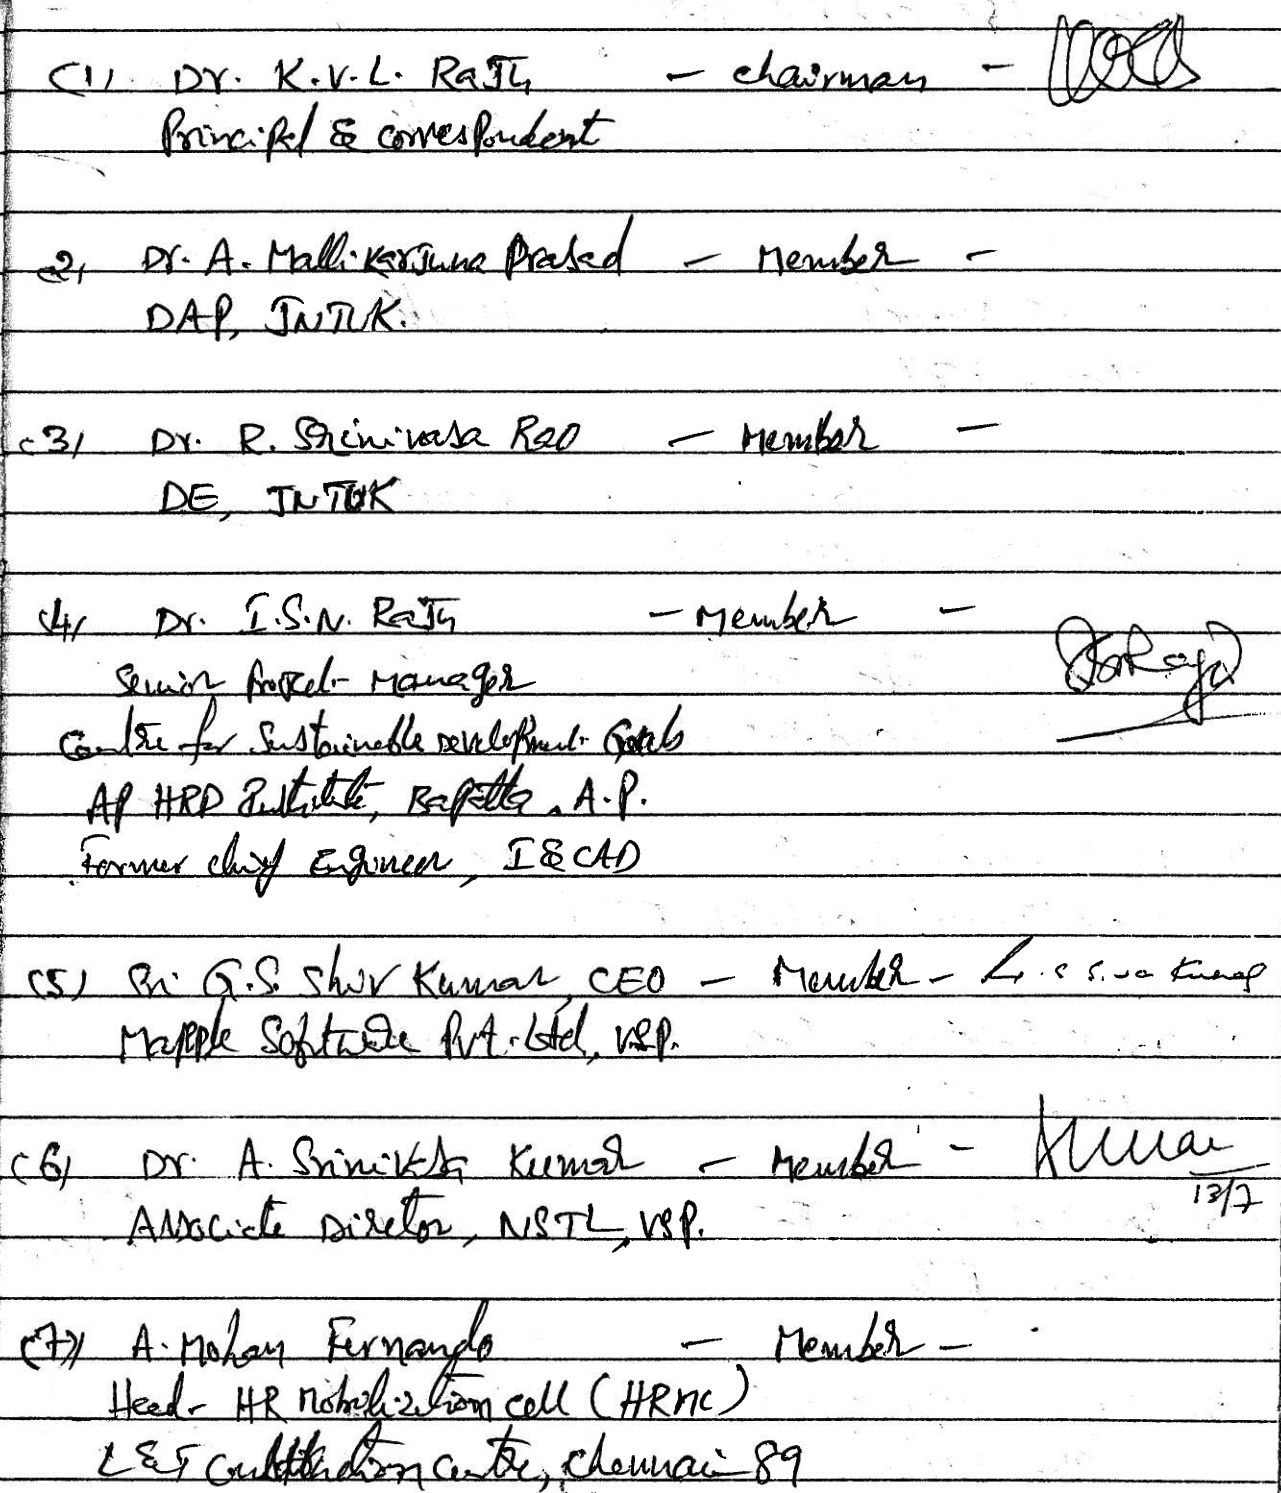 (1) Dr. K.V.L. Raju - chairman -
Principal & correspondent
(2) Dr. A. Mallikarjuna Prasad - Member -
DAP, JNTUK.
(3) Dr. R. Srinivasa Rao - Member -
DE, JNTUK
(4) Dr. I.S.N. Raju - Member -
Senior Project Manager
Centre for Sustainable Development Goals
AP HRD Institute, Bapatla, A.P.
Former chief Engineer, I & CAD
(5) Sri G.S. Shiv Kumar, CEO - Member - G.S Siva Kumar
Mapple Software Pvt. Ltd, VSP.
(6) Dr. A. Srinivas Kumar - Member -
13/7
Associate Director, NSTL, VSP.
(7) A. Mohan Fernando - Member -
Head - HR Mobilization cell (HRMC)
L&T Construction centre, Chennai - 89